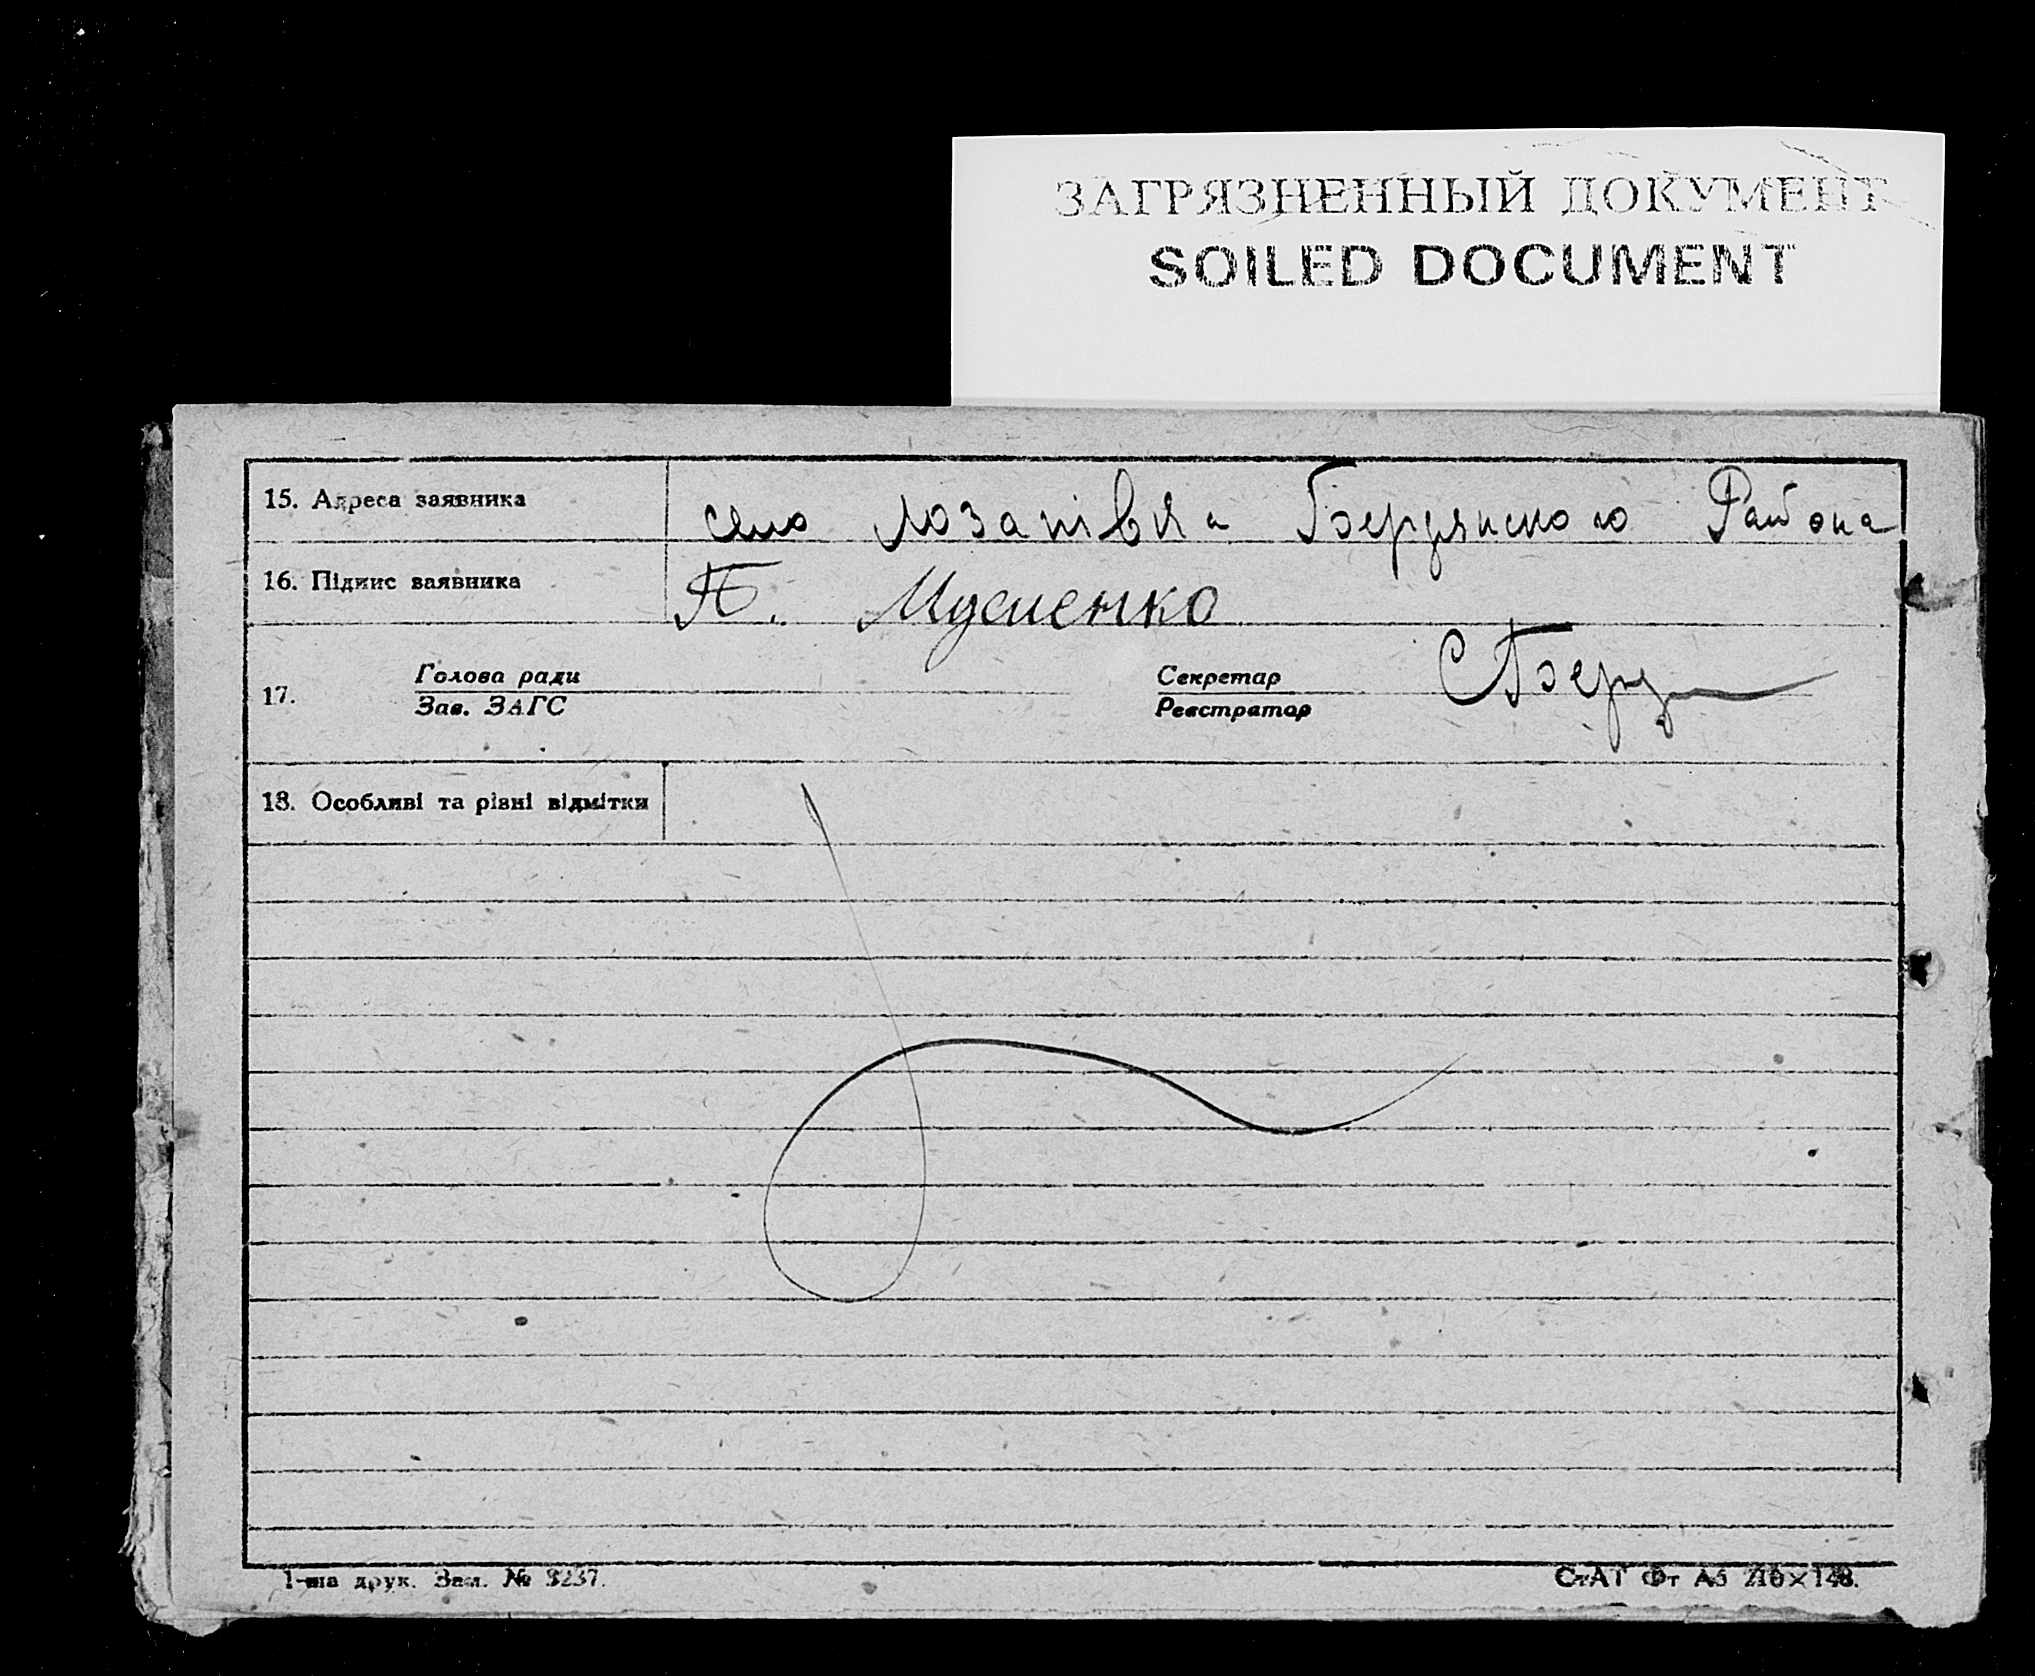 ЗАГРЯЗНЕННЫЙ ДОКУМЕНТ
SOILED DOCUMENT
15. Адреса заявника село Бердянского Района
16. Підпис заявника П. Мусиенко
17. Голова ради Секретар
Зав. ЗАГС Реєстратор
18. Особливі та різні відмітки
1-ша друк. Зам. № 3237.
СтАТ Фт А5 210×148.